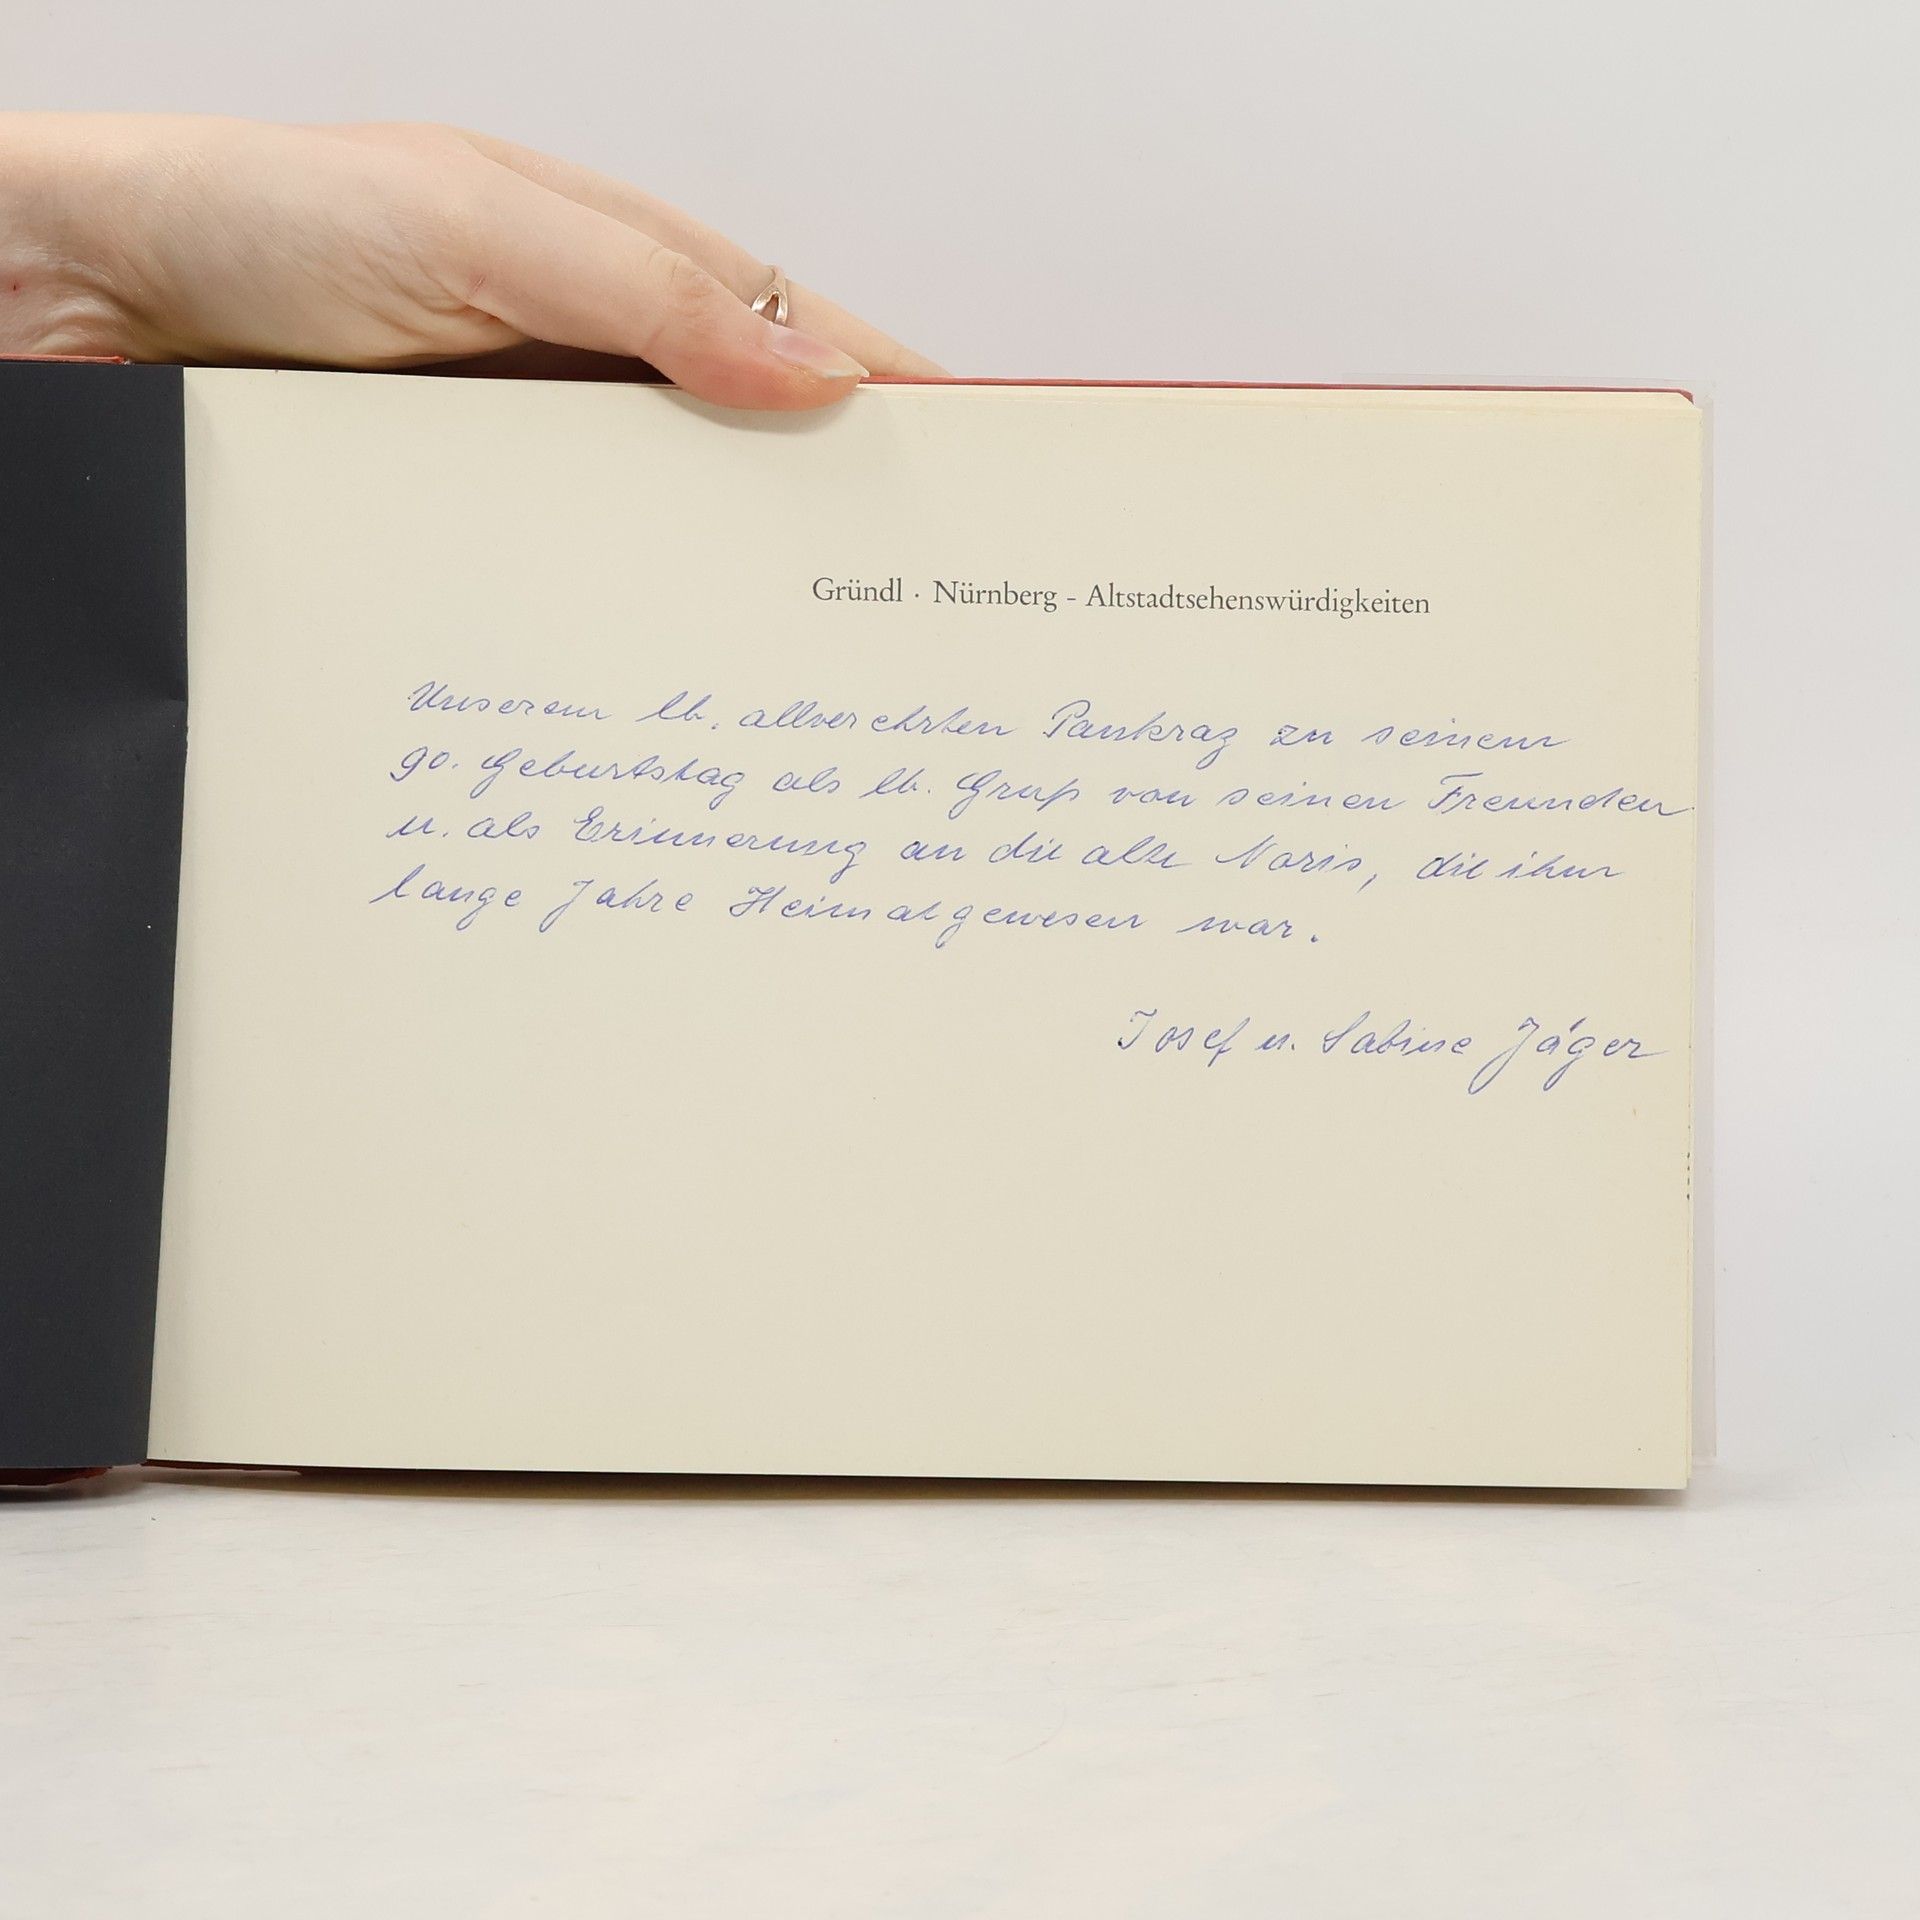 Gründl · Nürnberg - Altstadtsehenswürdigkeiten
Unserem lb. allverehrten Pankraz zu seinem
90. Geburtstag als lb. Gruß von seinen Freunden
u. als Erinnerung an die alte Noris, die ihm
lange Jahre Heimat gewesen war.
Josef u. Sabine Jäger